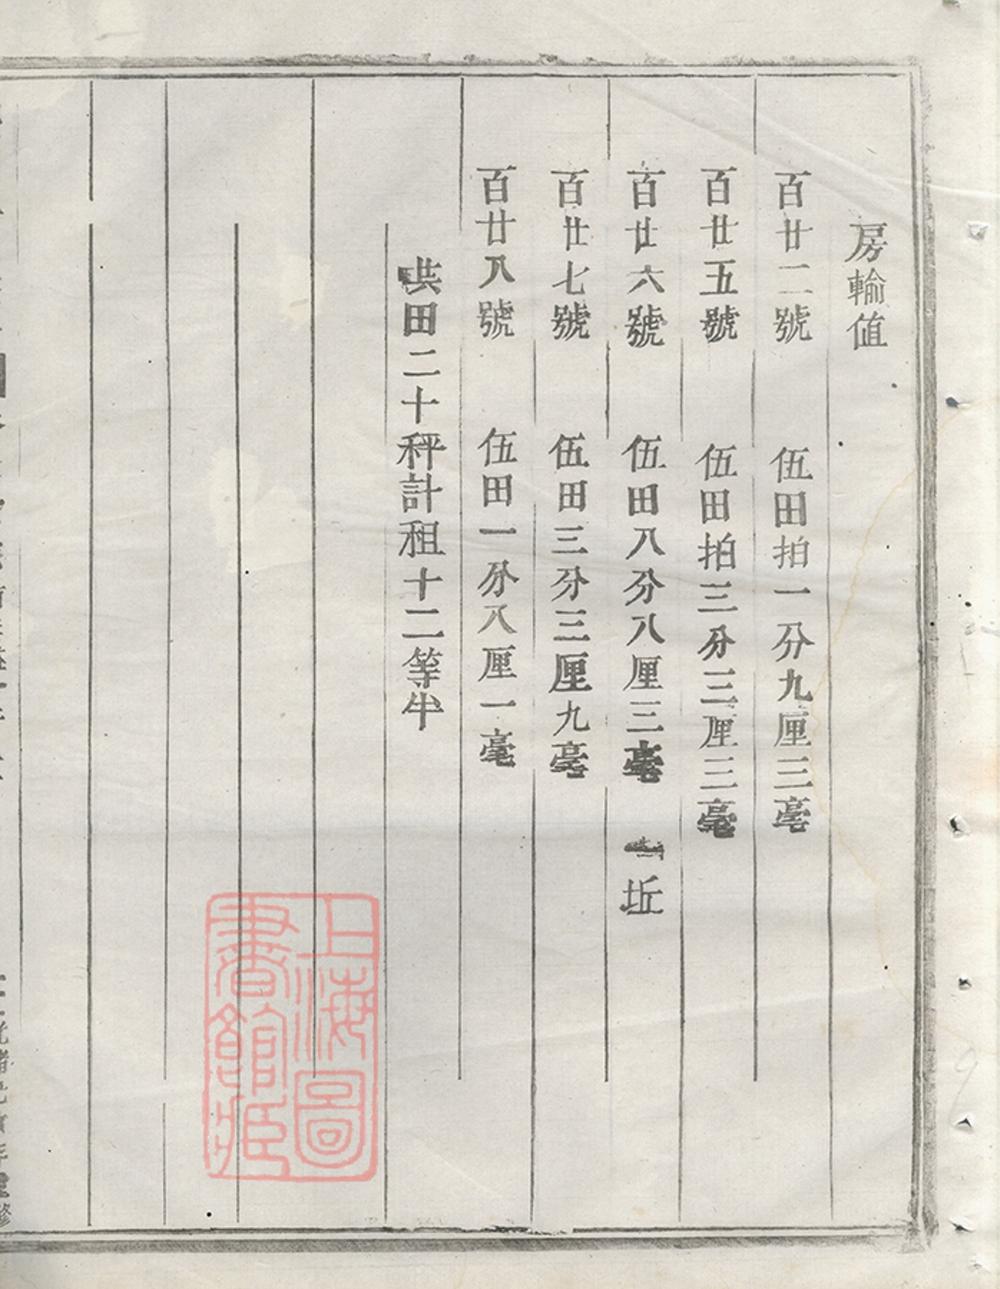 房輸值
百廿二號　伍田拍一分九厘三毫
百廿五號　伍田拍三分三厘三毫
百廿六號　伍田八分八厘三毫　一坵
百廿七號　伍田三分三厘九毫
百廿八號　伍田一分八厘一毫
田二十秤計租十二等半
上海圖
書館藏